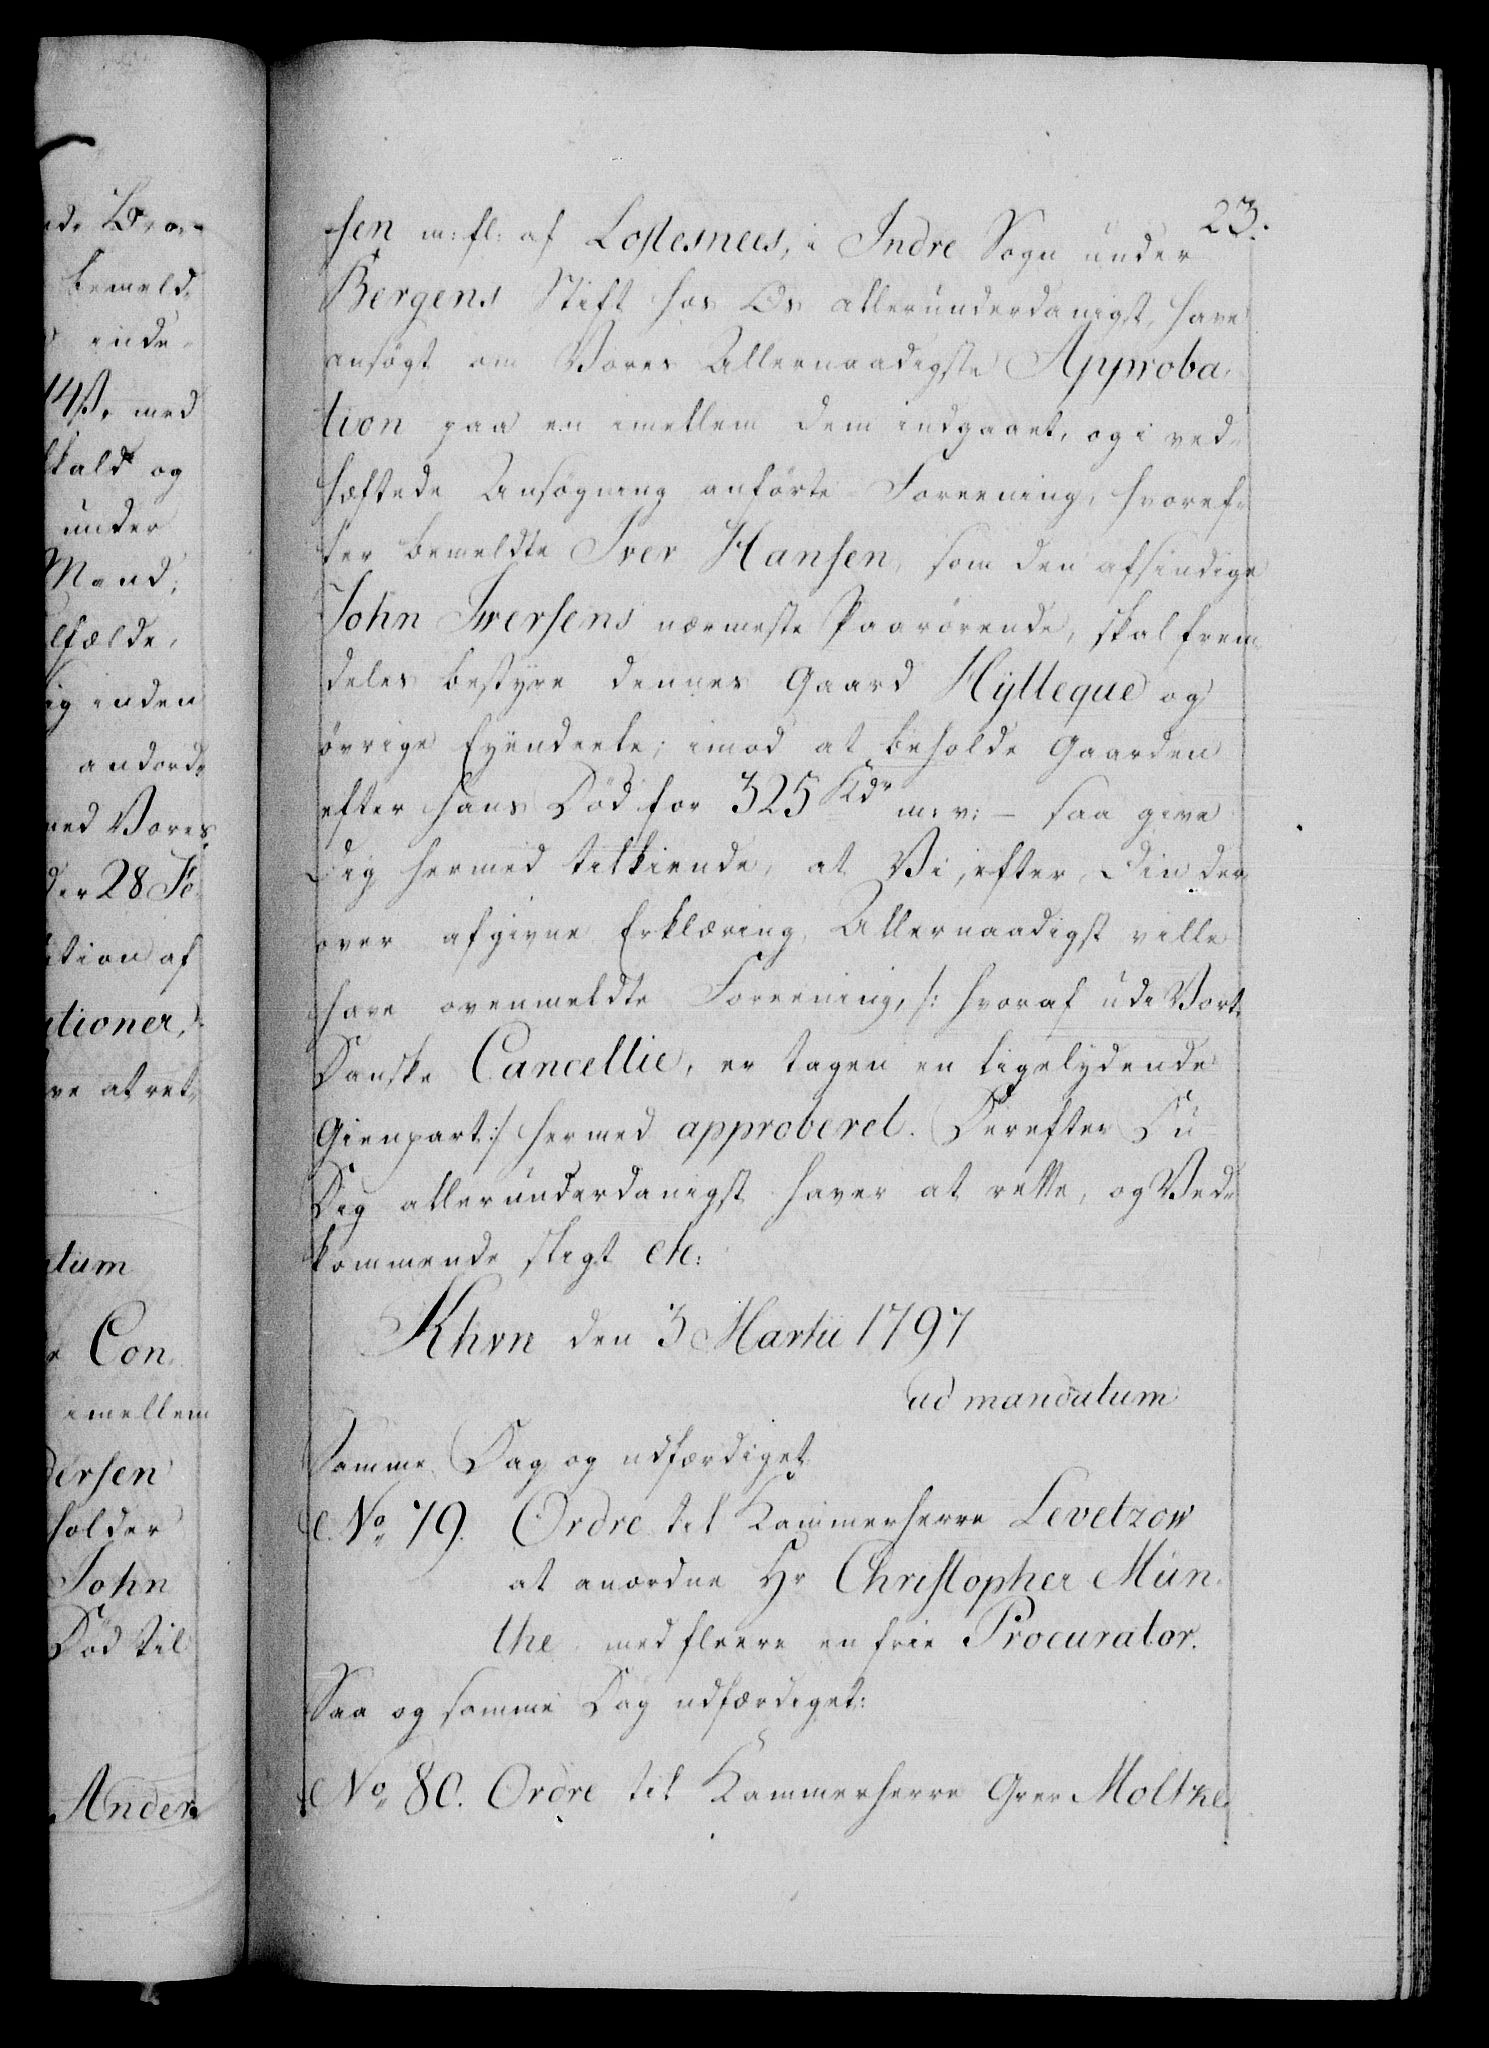 23.
sen m: fl: af Lostesnees, i Indre Sogn under
Bergens Stift hos Os allerunderdanigst, have
ansøgt om Vores Allernaadigste Approba-
tion paa en imellem dem indgaaet, og i ved-
hæftede Ansøgning anførte Foreening, hvoref-
ter bemeldte Iver Hansen, som den afsindige
John Iversens nærmeste Paarørende, skal frem-
deles bestyre dennes Gaard Hylleque og
øvrige Eyendeele, imod at beholde Gaarden
efter hans Død for 325 Rdr m: v: – saa give
Dig hermed tilkiende, at Vi, efter Din der-
over afgivne Erklæring, Allernaadigst ville
have ovenmeldte Foreening, /: hvoraf udi Vort
Danske Cancellie, er tagen en ligelydende
Gienpart :/ hermed approberet. Derefter Du
Dig allerunderdanigst haver at rette, og Ved-
kommende sligt etc:
Khvn den 3 Martii 1797
ad mandatum
Samme Dag og udfærdiget
No 79. Ordre til Kammerherre Levetzow
at anordne Hr Christopher Mün-
the, med fleere en frie Procurator.
Saa og samme Dag udfærdiget:
No 80. Ordre til Kammerherre Grev Moltke